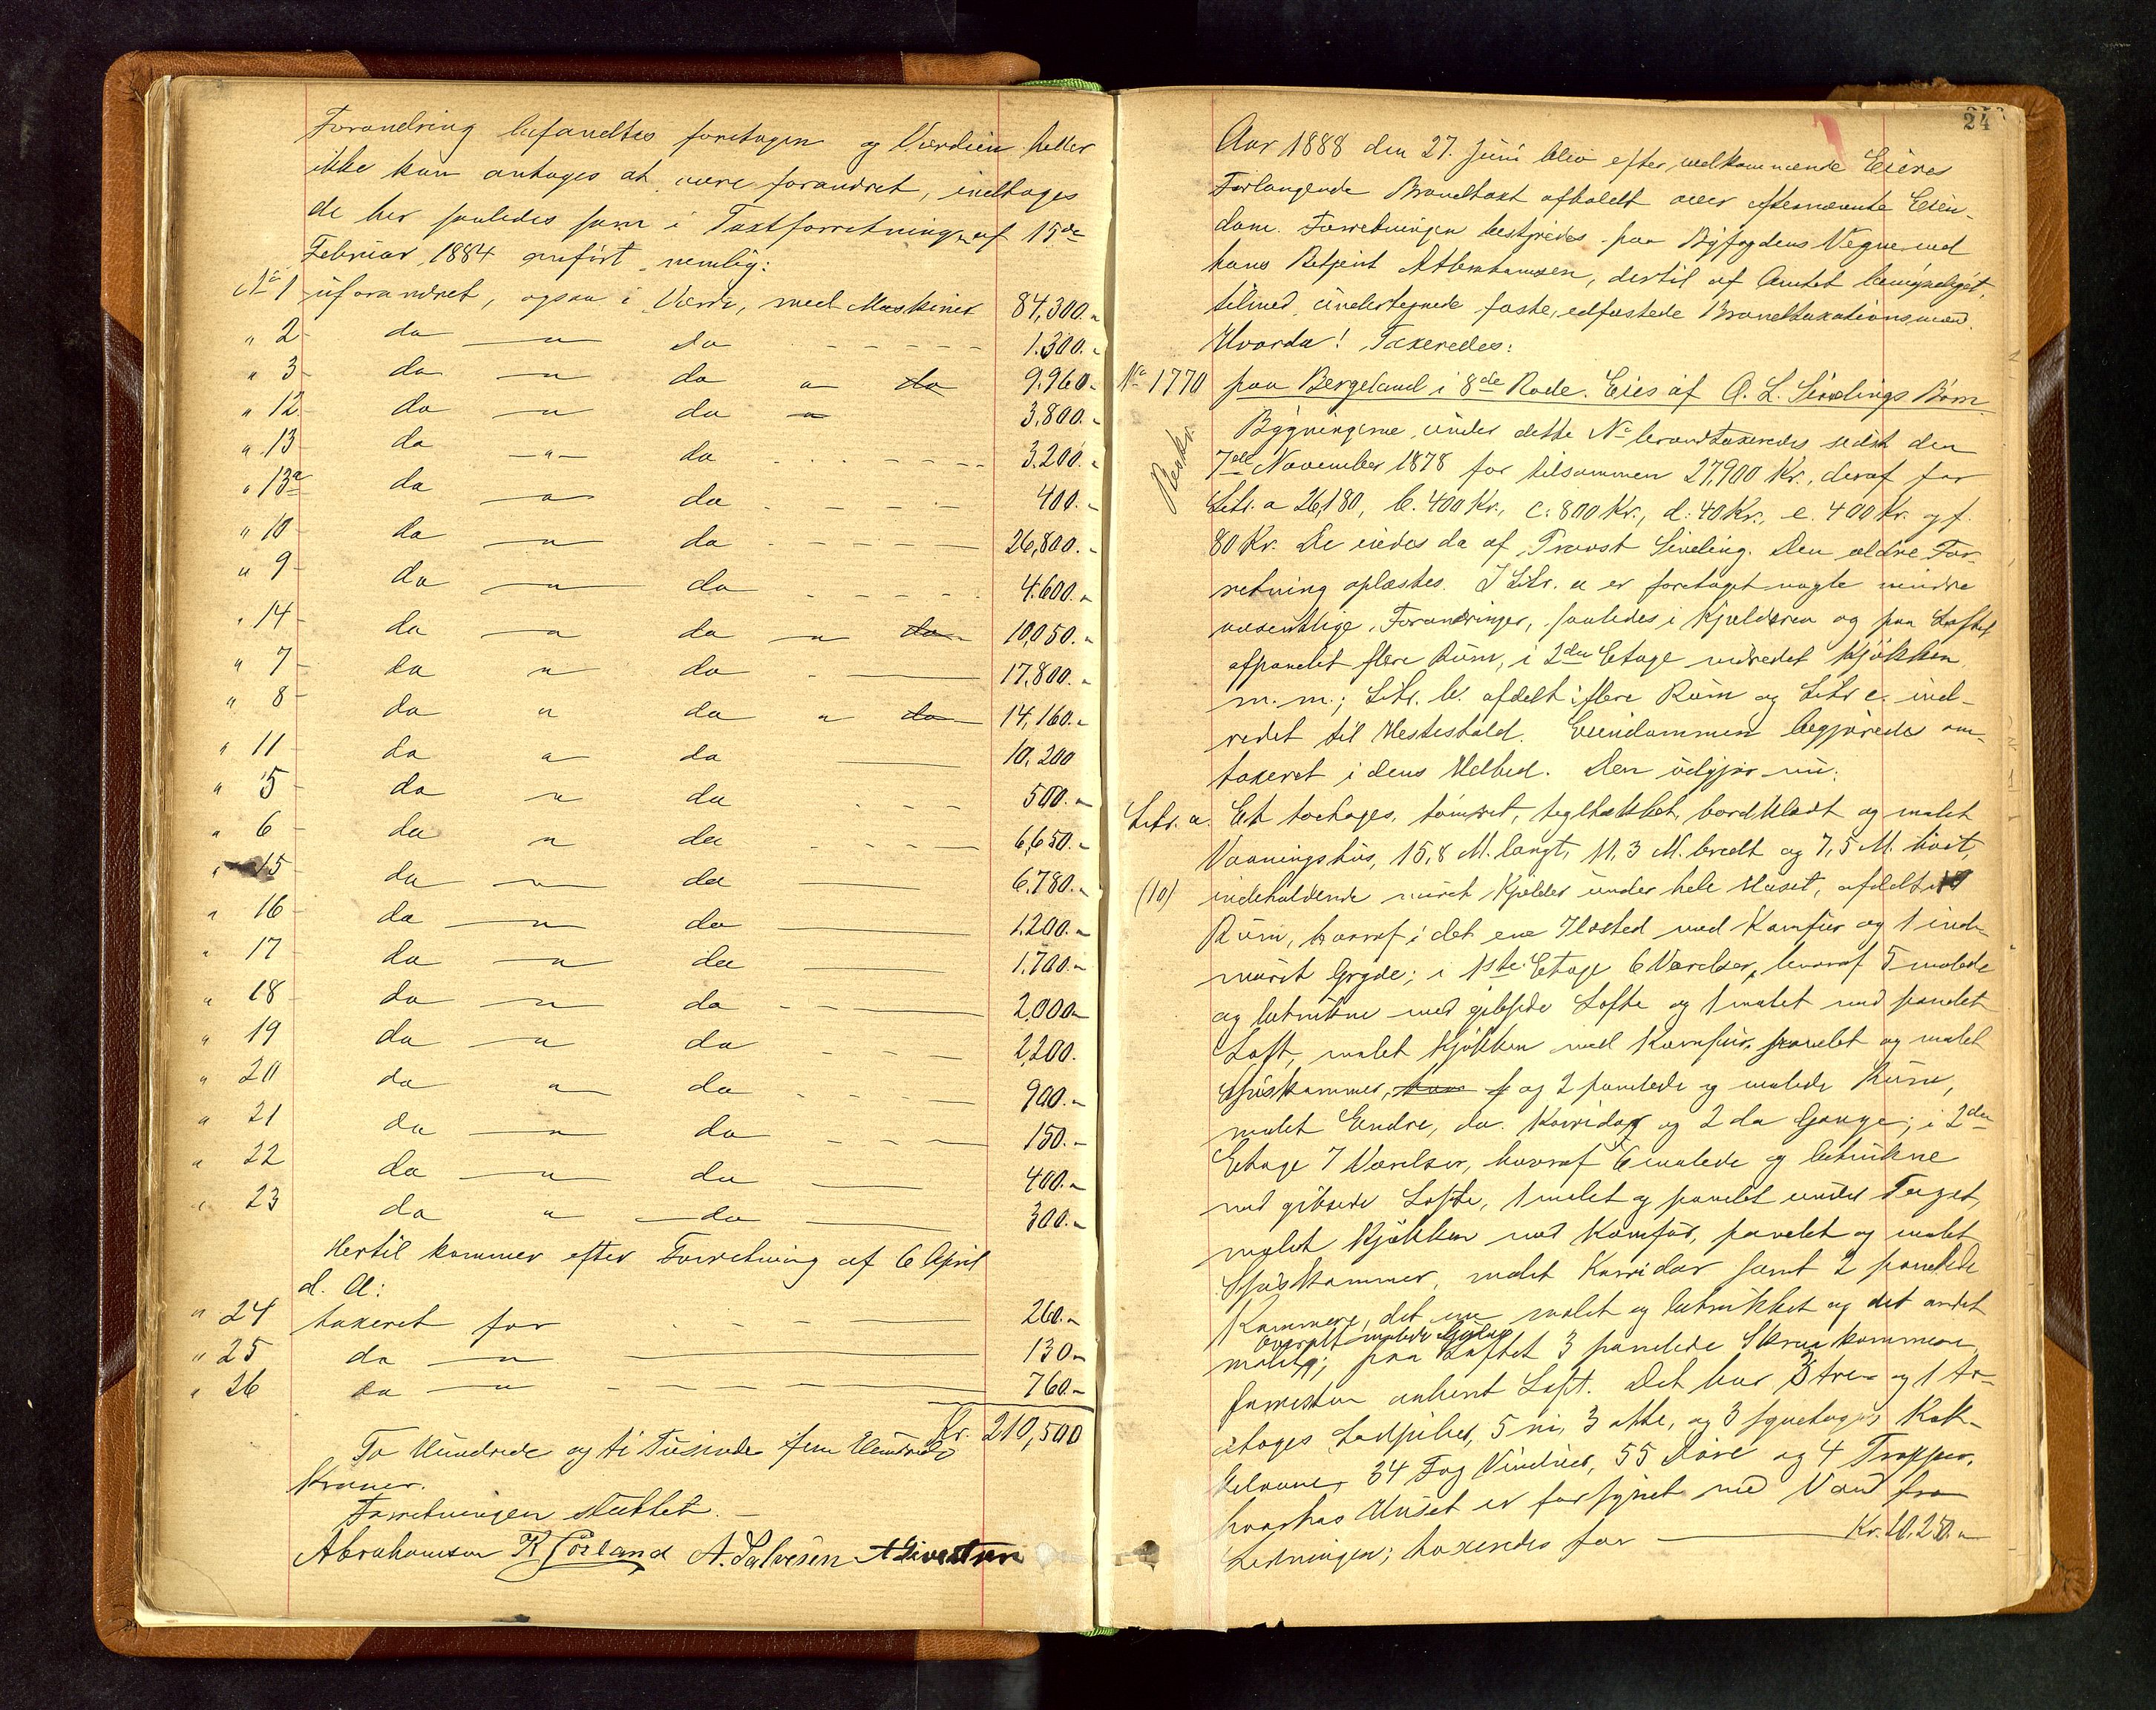 Forandring befandtes foretagen og Værdien heller
ikke kan antages at være forandret, indtages
de her saaledes som i Taxtforretning af 15de
Februar 1884 anført nemlig:
No 1 uforandret, ogsaa i Værdi, med Maskiner 84,300.„
„ 2 do — „ — do - - - - - 1.300.„
„ 3 do — „ — do „ do 9.960.„
„ 12 do — „ — do „ 3,800.„
„ 13 do — „ — do - - - - - 3.200.„
„ 13a do — „ — do - - - - - 400.„
„ 10 do — „ — do - - - - 26,800.„
„ 9 do — „ — do - - - - 4.600.„
„ 14 do — „ — do „ do 10,050.„
„ 7 do „ do — 17,800.„
„ 8 do „ do „ do 14,160.„
„ 11 do „ do — 10,200
„ 5 do „ do - - - 500.„
„ 6 do „ do - - - - 6,650.„
„ 15 do — „ — do — 6,780.„
„ 16 do — „ — do — 1.200.„
„ 17 do — „ — do — 1.700.„
„ 18 do — „ — do - - — 2,000„
„ 19 do — „ — do - - - 2,200.
„ 20 do „ do - - - - 900.„
„ 21 do — „ — do - - - - 150.„
„ 22 do — „ — do — 400.„
„ 23 do „ do — 300.„
Hertil kommer efter Forretning af 6 April
d. A:
„ 24 taxeret for - - - 260.„
„ 25 do — „ — 130„
„ 26 do — „ - - - - 760„
Kr. 210,500
To Hundrede og ti Tusinde fem Hundrede
Kroner.
Forretningen sluttet. —
Abrahamsen K Sörland A. Salvesen A Sivertsen
24
Aar 1888 den 27. Juni blev efter vedkommende Eieres
Forlangende Brandtaxt afholdt over efternævnte Eien-
dom. Forretningen bestyredes paa Byfogdens Vegne ved
hans Betjent Abrahamsen, dertil af Amtet bemyndiget,
tilmed undertegnede faste, edfæstede Brandtaxationsmænd.
Hvorda! Taxeredes:
No 1770 paa Bergeland i 8de Rode. Eies af O. L. Sindings Børn.
Beskr.
Bygningerne under dette No brandtaxeredes sidst den
7de November 1878 for tilsammen 27,900 Kr., deraf for
Litr. a 26,180, b. 400 Kr., c. 800 Kr., d. 40 Kr., e. 400 Kr. og f.
80 Kr. De eiedes da af Provst Sinding. Den ældre For-
retning oplæstes. I Litr. a er foretaget nogle mindre
væsentlige Forandringer, saaledes i Kjælderen og paa Loftet
afpanelet flere Rum, i 2den Etage indredet Kjøkken
m. m.; Litr. b. afdelt i flere Rum og Litr e. ind-
redet til Hestestald. Eiendommen begjæredes om-
taxeret i dens Helhed. Den udgjør nu:
Litr. a. Et toetages, tømret, tegltækket, bordklædt og malet
Vaaningshus, 15,8 M. langt, 11,3 M. bredt og 7,5 M. høit,
(10) indeholdende muret Kjelder under hele Huset, afdelt i 10
Rum, hvoraf i det ene Ildsted med Komfur og 1 ind-
muret Gryde; i 1ste Etage 6 Værelser, hvoraf 5 malede
og betrukne med gibsede Lofte og 1 malet med panelet
Loft, malet Kjøkken med Komfur, panelet og malet
Spiskammer, og 2 panelede og malede Rum,
malet Entre, do. Korridor og 2 do Gange; i 2den
Etage 7 Værelser, hvoraf 6 malede og betrukne
med gibsede Lofte, 1 malet og panelet under Taget,
malet Kjøkken med Komfur, panelet og malet
Spiskammer, malet Korridor samt 2 panelede
Kammere, det ene malet og betrukket og det andet
overalt malede Gulve
malet; paa Loftet 3 panelede Skraakammere,
forresten aabent Loft. Det har 3 tre- og 1 to-
etages Ladpiber, 5 ni, 3 otte, og 3 syvetages Kak-
kelovne, 34 Fag Vinduer, 55 Døre og 4 Trapper,
hvorhos Huset er forsynet med Vand fra
Ledningen; taxeredes for — Kr. 20,250.„